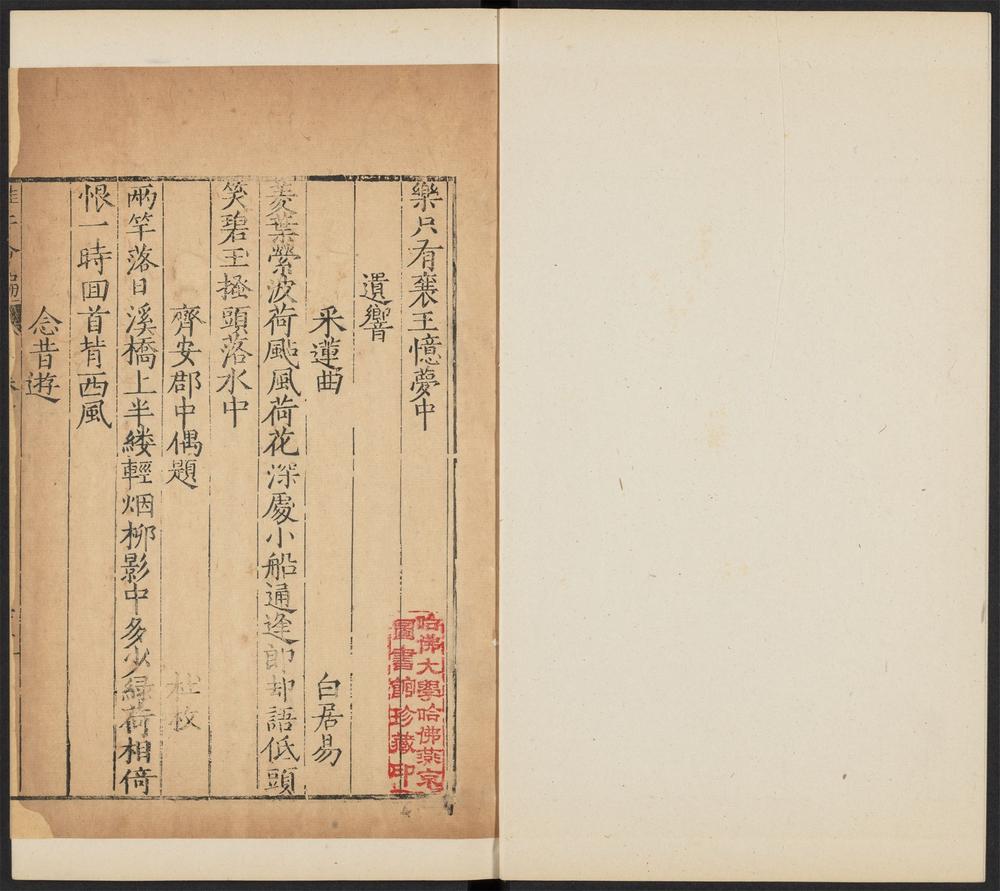 樂只有襄王憶夢中
遺響
采蓮曲 白居易
菱葉縈波荷颭風荷花深處小船通逢郎却語低頭
笑碧玉搔頭落水中
齊安郡中偶題 杜牧
兩竿落日溪橋上半縷輕烟柳影中多少綠荷相倚
恨一時回首背西風
念昔遊
哈佛大學哈佛燕京
圖書館珍藏印